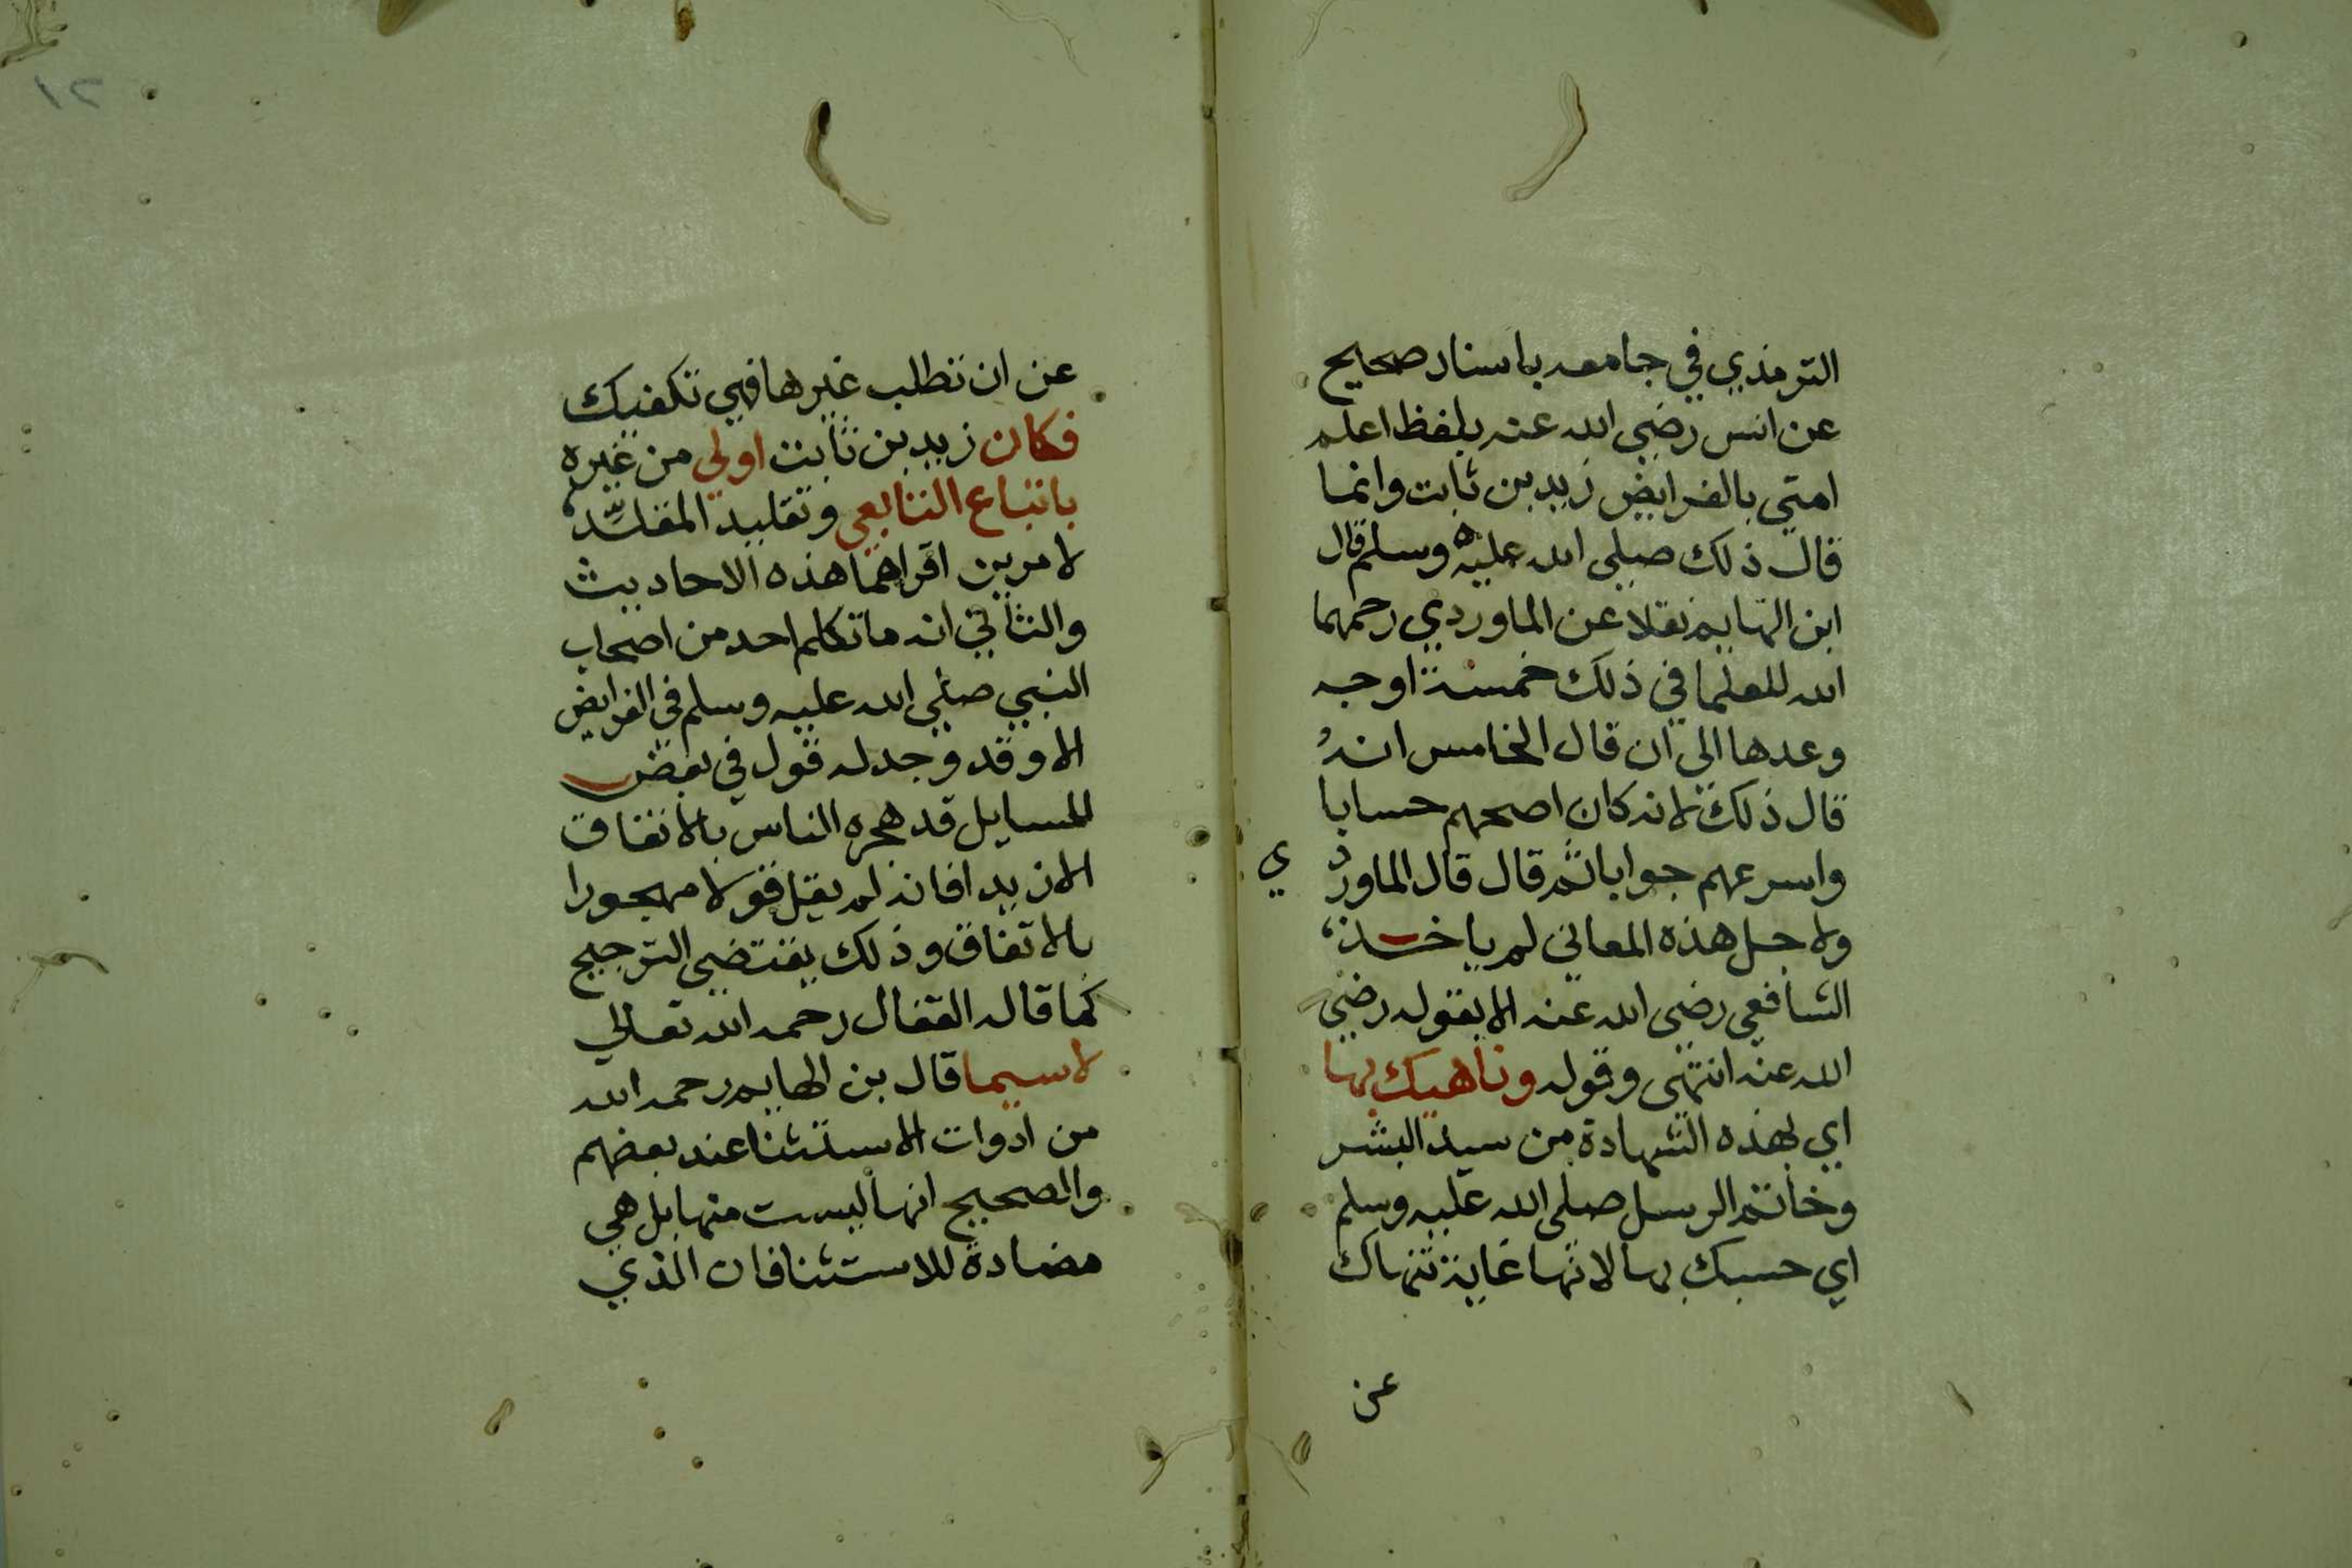 الترمذي في جامعه باسناد صحيح
عن انس رضي الله عنه بلفظ اعلم
امتي بالفرايض زيد بن ثابت وانما
قال ذلك صلي الله عليه وسلم قال
ابن الهايم نقلا عن الماوردي رحمهما
الله للعلما في ذلك خمسة اوجه
وعدها الى ان قال الخامس انه
قال ذلك لانه كان اصحهم حسابا
واسرعهم جوابا ثم قال قال الماورد
ي
ولاجل هذه المعاني لم ياخذ
الشافعي رضي الله عنه الا بقوله رضي
الله عنه انتهى وقوله وناهيك بها
اي بهذه الشهادة من سيد البشر
وخاتم الرسل صلى الله عليه وسلم
اي حسبك بها لانها غاية تنهاك
عن
٢١
عن ان تطلب غيرها فهي تكفيك
فكان زيد بن ثابت اولي من غيره
باتباع التابعي وتقليد المقلد
لامرين اقراهما هذه الاحاديث
والثاني انه ما تكلم احد من اصحاب
النبي صلي الله عليه وسلم في الفرايض
الا وقد وجد له قول في بعض
المسايل قد هجره الناس بالاتفاق
الا زيدا فانه لم يقل قولا مهجورا
بالاتفاق وذلك يقتضي الترجيح
كما قاله القفال رحمه الله تعالي
لا سيما قال بن الهايم رحمه الله
من ادوات الاستثنا عند بعضهم
والصحيح انها ليست منها بل هي
مضادة للاستثنا فان الذي